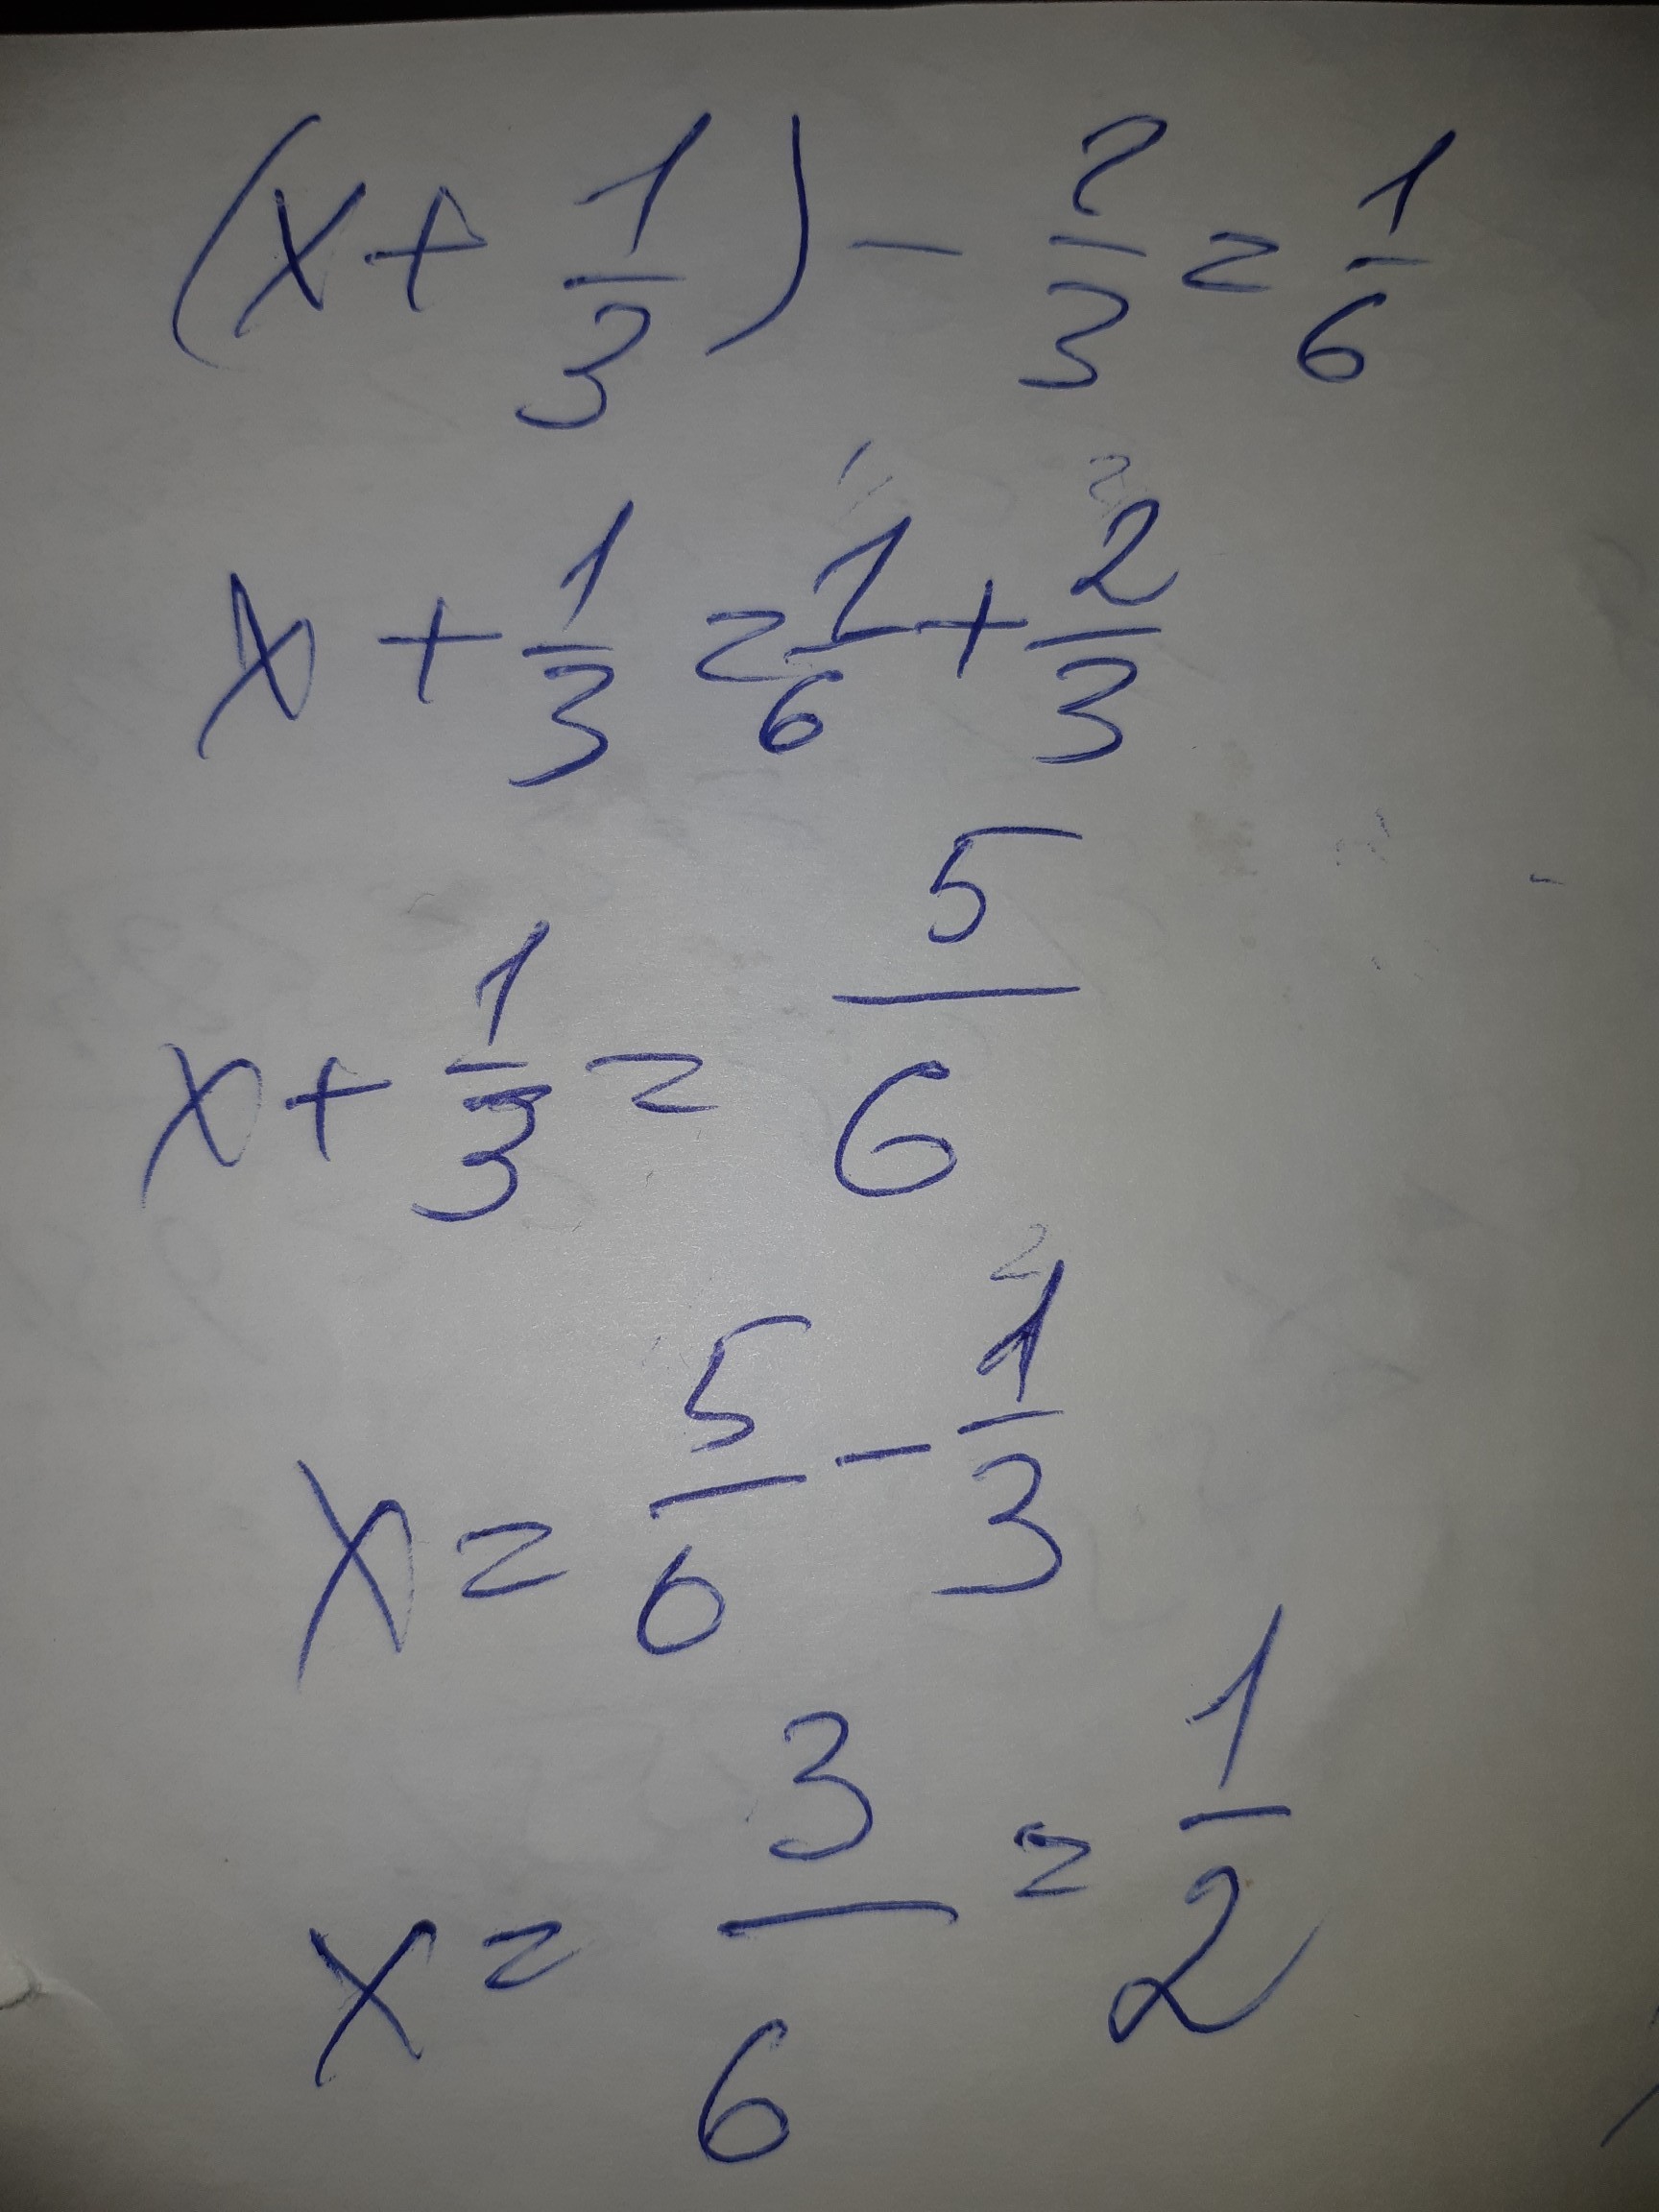 (x + 1/3) - 2/3 = 1/6
x + 1/3 = 1/6 + 2/3
x + 1/3 = 5/6
x = 5/6 - 1/3
x = 3/6 = 1/2